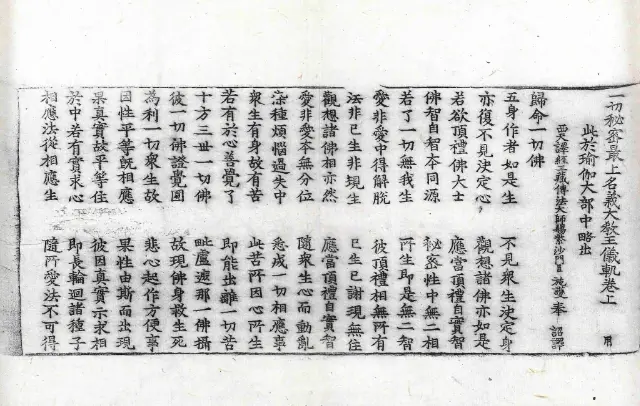 一切秘密最上名義大教王儀軌卷上 用
此於瑜伽大部中略出
西天譯經三藏傳法大師賜紫沙門臣施護奉 詔譯
歸命一切佛
五身作者如是生 不見衆生決定身
亦復不見決定心 觀想諸佛亦如是
若欲頂禮佛大士 應當頂禮自實智
佛智自智本同源 秘密性中無二相
若了一切無我生 所生即是無二智
愛非愛中得解脫 彼頂禮相無所有
法非已生非現生 已生已謝現無住
觀想諸佛相亦然 應當頂禮自實智
愛非愛本無分位 隨衆生心而動亂
染種煩惱過失中 悉成一切相應事
衆生有身故有苦 此苦所因心所生
若有於心善覺了 即能出離一切苦
十方三世一切佛 毗盧遮那一佛攝
彼一切佛證覺因 故現佛身救生死
為利一切衆生故 悲心起作方便事
因性平等旣相應 果性由斯而出現
果真實故平等住 彼因真實示求相
於中若有實求心 即長輪迴諸種子
相應法從相應生 隨所愛法不可得